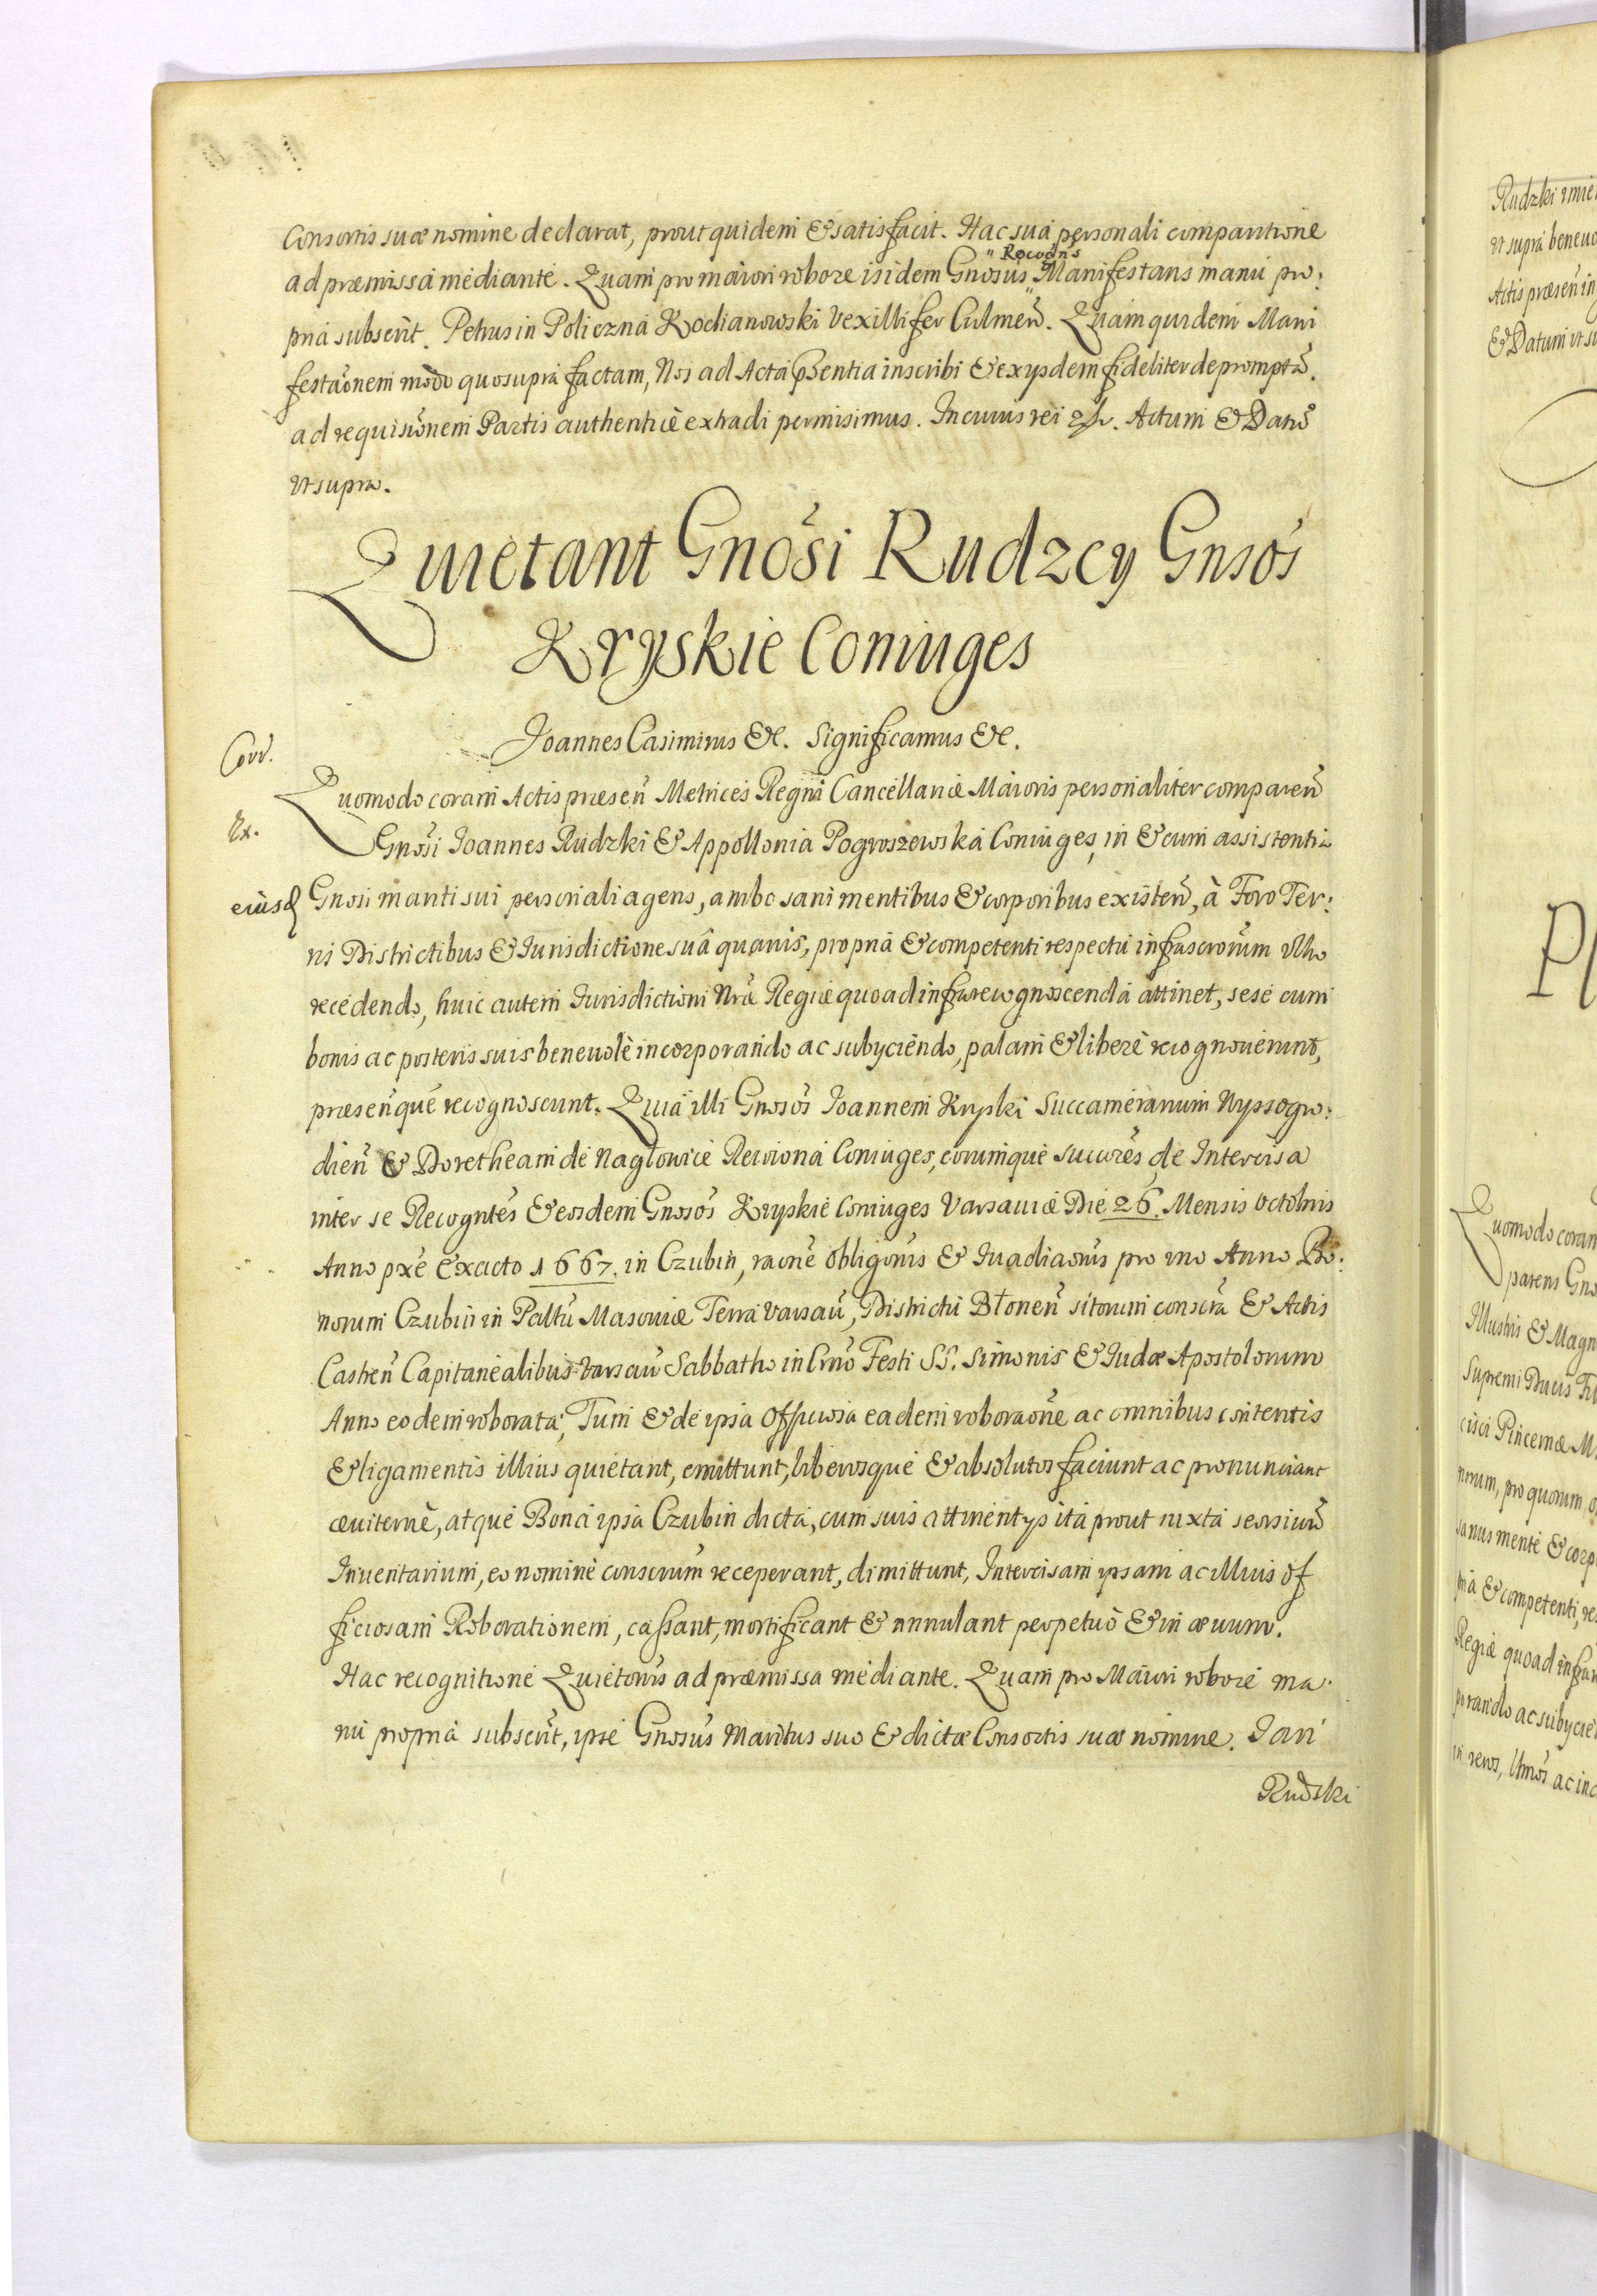 Consortis suæ nomine declarat, prout quidem & satisfacit. Hac sua personali comparitione
Recogns
ad præmissa mediante. Quam pro maiori robore isidem Gnosus Manifestans manu pro:
pria subscrit. Petrus in Policzna Kochanowski Vexillifer Culmen. Quam quidem Mani
festaonem modo quo supra factam, Nos ad Acta psentia inscribi & ex ysdem fideliter depromptã.
ad requisionem Partis authenticè extradi permisimus. In cuius rei &c. Actum & Datũ
ut supra.
Quietant Gnosi Rudzcy Gnsos
Kryskie Coniuges
Joannes Casimirus &c. Significamus &c.
Corr.
Quomodo coram Actis præsen Metrices Regni Cancellariæ Maioris personaliter comparen
Ex.
Gnosi Joannes Rudzki & Appollonia Pogroszewska Coniuges, in & cum assistentia
eiusd Gnosi mariti sui personali agens, ambo sani mentibus & corporibus existen, à Foro Ter:
ris Districtibus & Jurisdictione suâ quavis, propria & competenti respectu infrascrorum
recedendo, huic autem Jurisdictioni Nræ Regiæ quoad infra recognoscenda attinet, sese cum
bonis ac posteris suis benevolè incorporando ac subyciendo, palam & liberè recognoverunt,
præsenque recognoscunt. Quia illi Gnosos Joannem Kryski Succamerarium Wyssogro:
dien & Dorotheam de Nagłowice Reiowna Coniuges, eorumque succores de Intercisa
inter se Recogntes & eosdem Gnosos Kryskie Coniuges Varsaviæ Die 26. Mensis Octobris
Anno pxe exacto 1667. in Czubin, raone obligonis & Inuadiaonis pro uno Anno Bo:
norum Czubin in Paltu Masoviæ Terra Varsav, Districtu Błonen sitorum conscra & Actis
Castren Capitanealibus Varsav Sabbatho in Crno Festi SS. Simonis & Judæ Apostolorum
Anno eodem roborata; Tum & de ipsa officiosa eadem roboraone ac omnibus contentis
& ligamentis illius quietant, emittunt, liberosque & absolutos faciunt ac pronunciant
æviternè, atque Bona ipsa Czubin dicta, cum suis attinentys ita prout iuxta seorsivũ
Inventarium, eo nomine conscrum receperant, dimittunt, Intercisam ipsam ac illius of
ficiosam Roborationem, cassant, mortificant & annulant perpetuò & in ævum.
Hac recognitione Quietonis ad præmissa mediante. Quam pro Maiori robore ma
nu propria subscrit, ipse Gnosus Maritus suo & dictæ Consortis suæ nomine. Jan
Rudzki
Rudzki imie
ut supra benevo
Actis præsen in
& Datum ut su
Quomodo coram
parens Gno
Illustris & Magn
Supremi Ducis
cisci Pincernæ M
norum, pro quorum
sanus mente & corp
pria & competenti, re
Regiæ quoad infra
porando ac subycie
ac